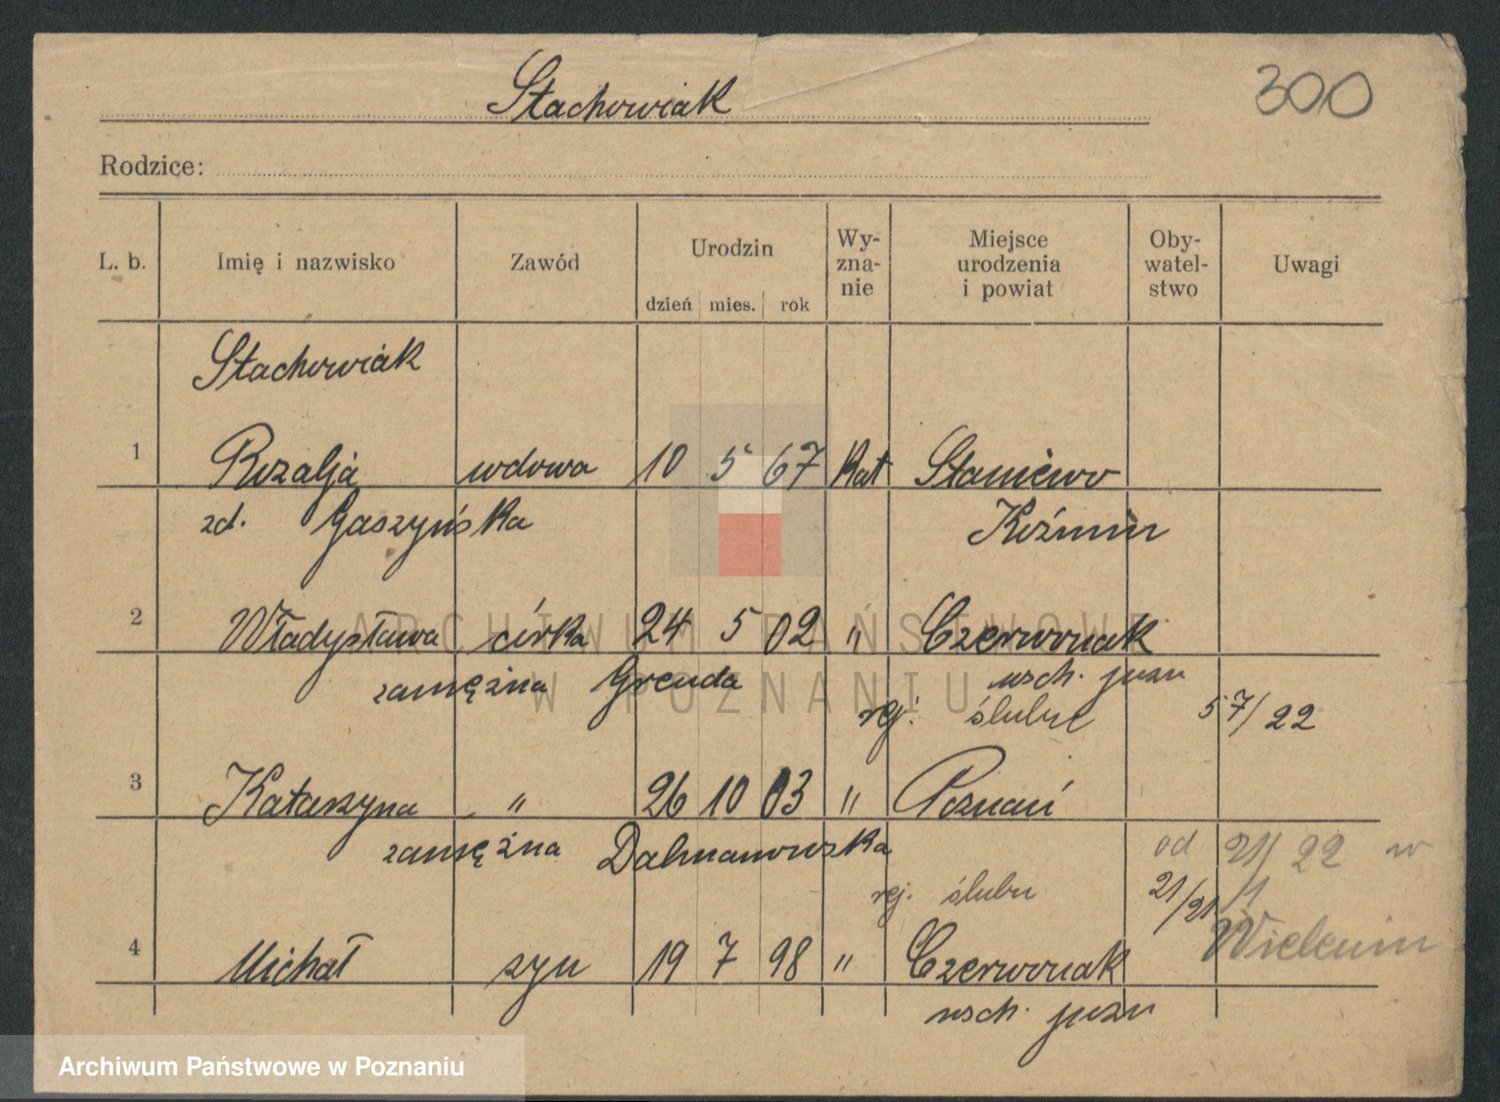 Stachowiak
300
Rodzice:
L. b. Imię i nazwisko Zawód Urodzin dzień mies. rok Wy-zna-nie Miejsce urodzenia i powiat Oby-watel-stwo Uwagi
Stachowiak
1 Rozalja wdowa 10 5 67 Kat Staniewo
zd. Gaszyńska Koźmin
2 Władysława córka 24 5 02 " Czerwonak
zamężna Grenda wsch. pozn
rej. ślubu 57/22
3 Katarzyna " 26 10 03 " Poznań
zamężna Dalmanowska od 21/22 w
rej. ślubu 21/21 /1
Wieleniu
4 Michał syn 19 7 98 " Czerwonak
wsch. pozn
ARCHIWUM PAŃSTWOWE
W POZNANIU
Archiwum Państwowe w Poznaniu